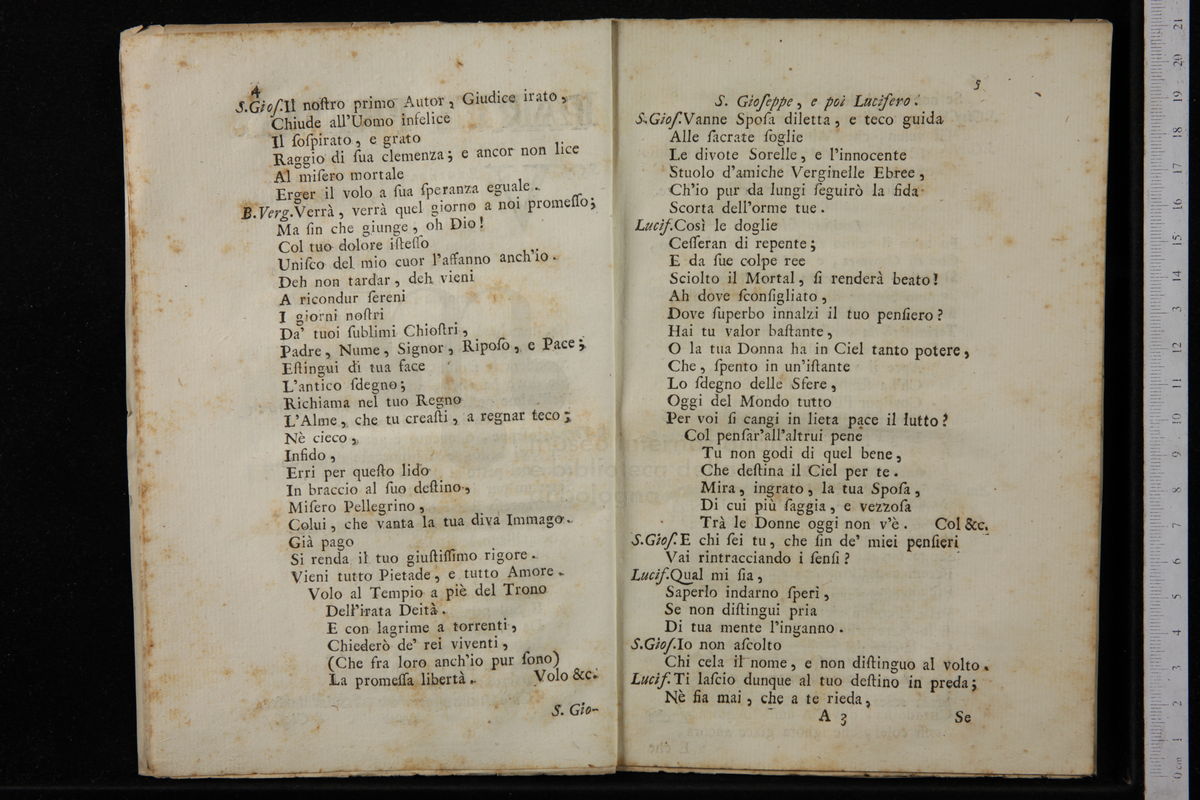 4
S.Gioſ.Il noſtro primo Autor, Giudice irato,
Chiude all'Uomo infelice
Il ſoſpirato, e grato
Raggio di ſua clemenza; e ancor non lice
Al miſero mortale
Erger il volo a ſua ſperanza eguale.
B.Verg.Verrà, verrà quel giorno a noi promeſſo;
Ma ſin che giunge, oh Dio!
Col tuo dolore iſteſſo
Uniſco del mio cuor l'affanno anch'io.
Deh non tardar, deh vieni
A ricondur ſereni
I giorni noſtri
Da' tuoi ſublimi Chioſtri,
Padre, Nume, Signor, Ripoſo, e Pace;
Eſtingui di tua face
L'antico ſdegno;
Richiama nel tuo Regno
L'Alme, che tu creaſti, a regnar teco;
Nè cieco,
Infido,
Erri per queſto lido
In braccio al ſuo deſtino,
Miſero Pellegrino,
Colui, che vanta la tua diva Immago.
Già pago
Si renda il tuo giuſtiſſimo rigore.
Vieni tutto Pietade, e tutto Amore.
Volo al Tempio a piè del Trono
Dell'irata Deità.
E con lagrime a torrenti,
Chiederò de' rei viventi,
(Che fra loro anch'io pur ſono)
La promeſſa libertà. Volo &c.
S. Gio-
5
S. Gioſeppe, e poi Lucifero.
S.Gioſ.Vanne Spoſa diletta, e teco guida
Alle ſacrate ſoglie
Le divote Sorelle, e l'innocente
Stuolo d'amiche Verginelle Ebree,
Ch'io pur da lungi ſeguirò la fida
Scorta dell'orme tue.
Lucif.Così le doglie
Ceſſeran di repente;
E da ſue colpe ree
Sciolto il Mortal, ſi renderà beato!
Ah dove ſconſigliato,
Dove ſuperbo innalzi il tuo penſiero?
Hai tu valor baſtante,
O la tua Donna ha in Ciel tanto potere,
Che, ſpento in un'iſtante
Lo ſdegno delle Sfere,
Oggi del Mondo tutto
Per voi ſi cangi in lieta pace il lutto?
Col penſar'all'altrui pene
Tu non godi di quel bene,
Che deſtina il Ciel per te.
Mira, ingrato, la tua Spoſa,
Di cui più ſaggia, e vezzoſa
Trà le Donne oggi non v'è. Col &c.
S.Gioſ.E chi ſei tu, che ſin de' miei penſieri
Vai rintracciando i ſenſi?
Lucif.Qual mi ſia,
Saperlo indarno ſperi,
Se non diſtingui pria
Di tua mente l'inganno.
S.Gioſ.Io non aſcolto
Chi cela il nome, e non diſtinguo al volto.
Lucif.Ti laſcio dunque al tuo deſtino in preda;
Nè fia mai, che a te rieda,
A 3 Se